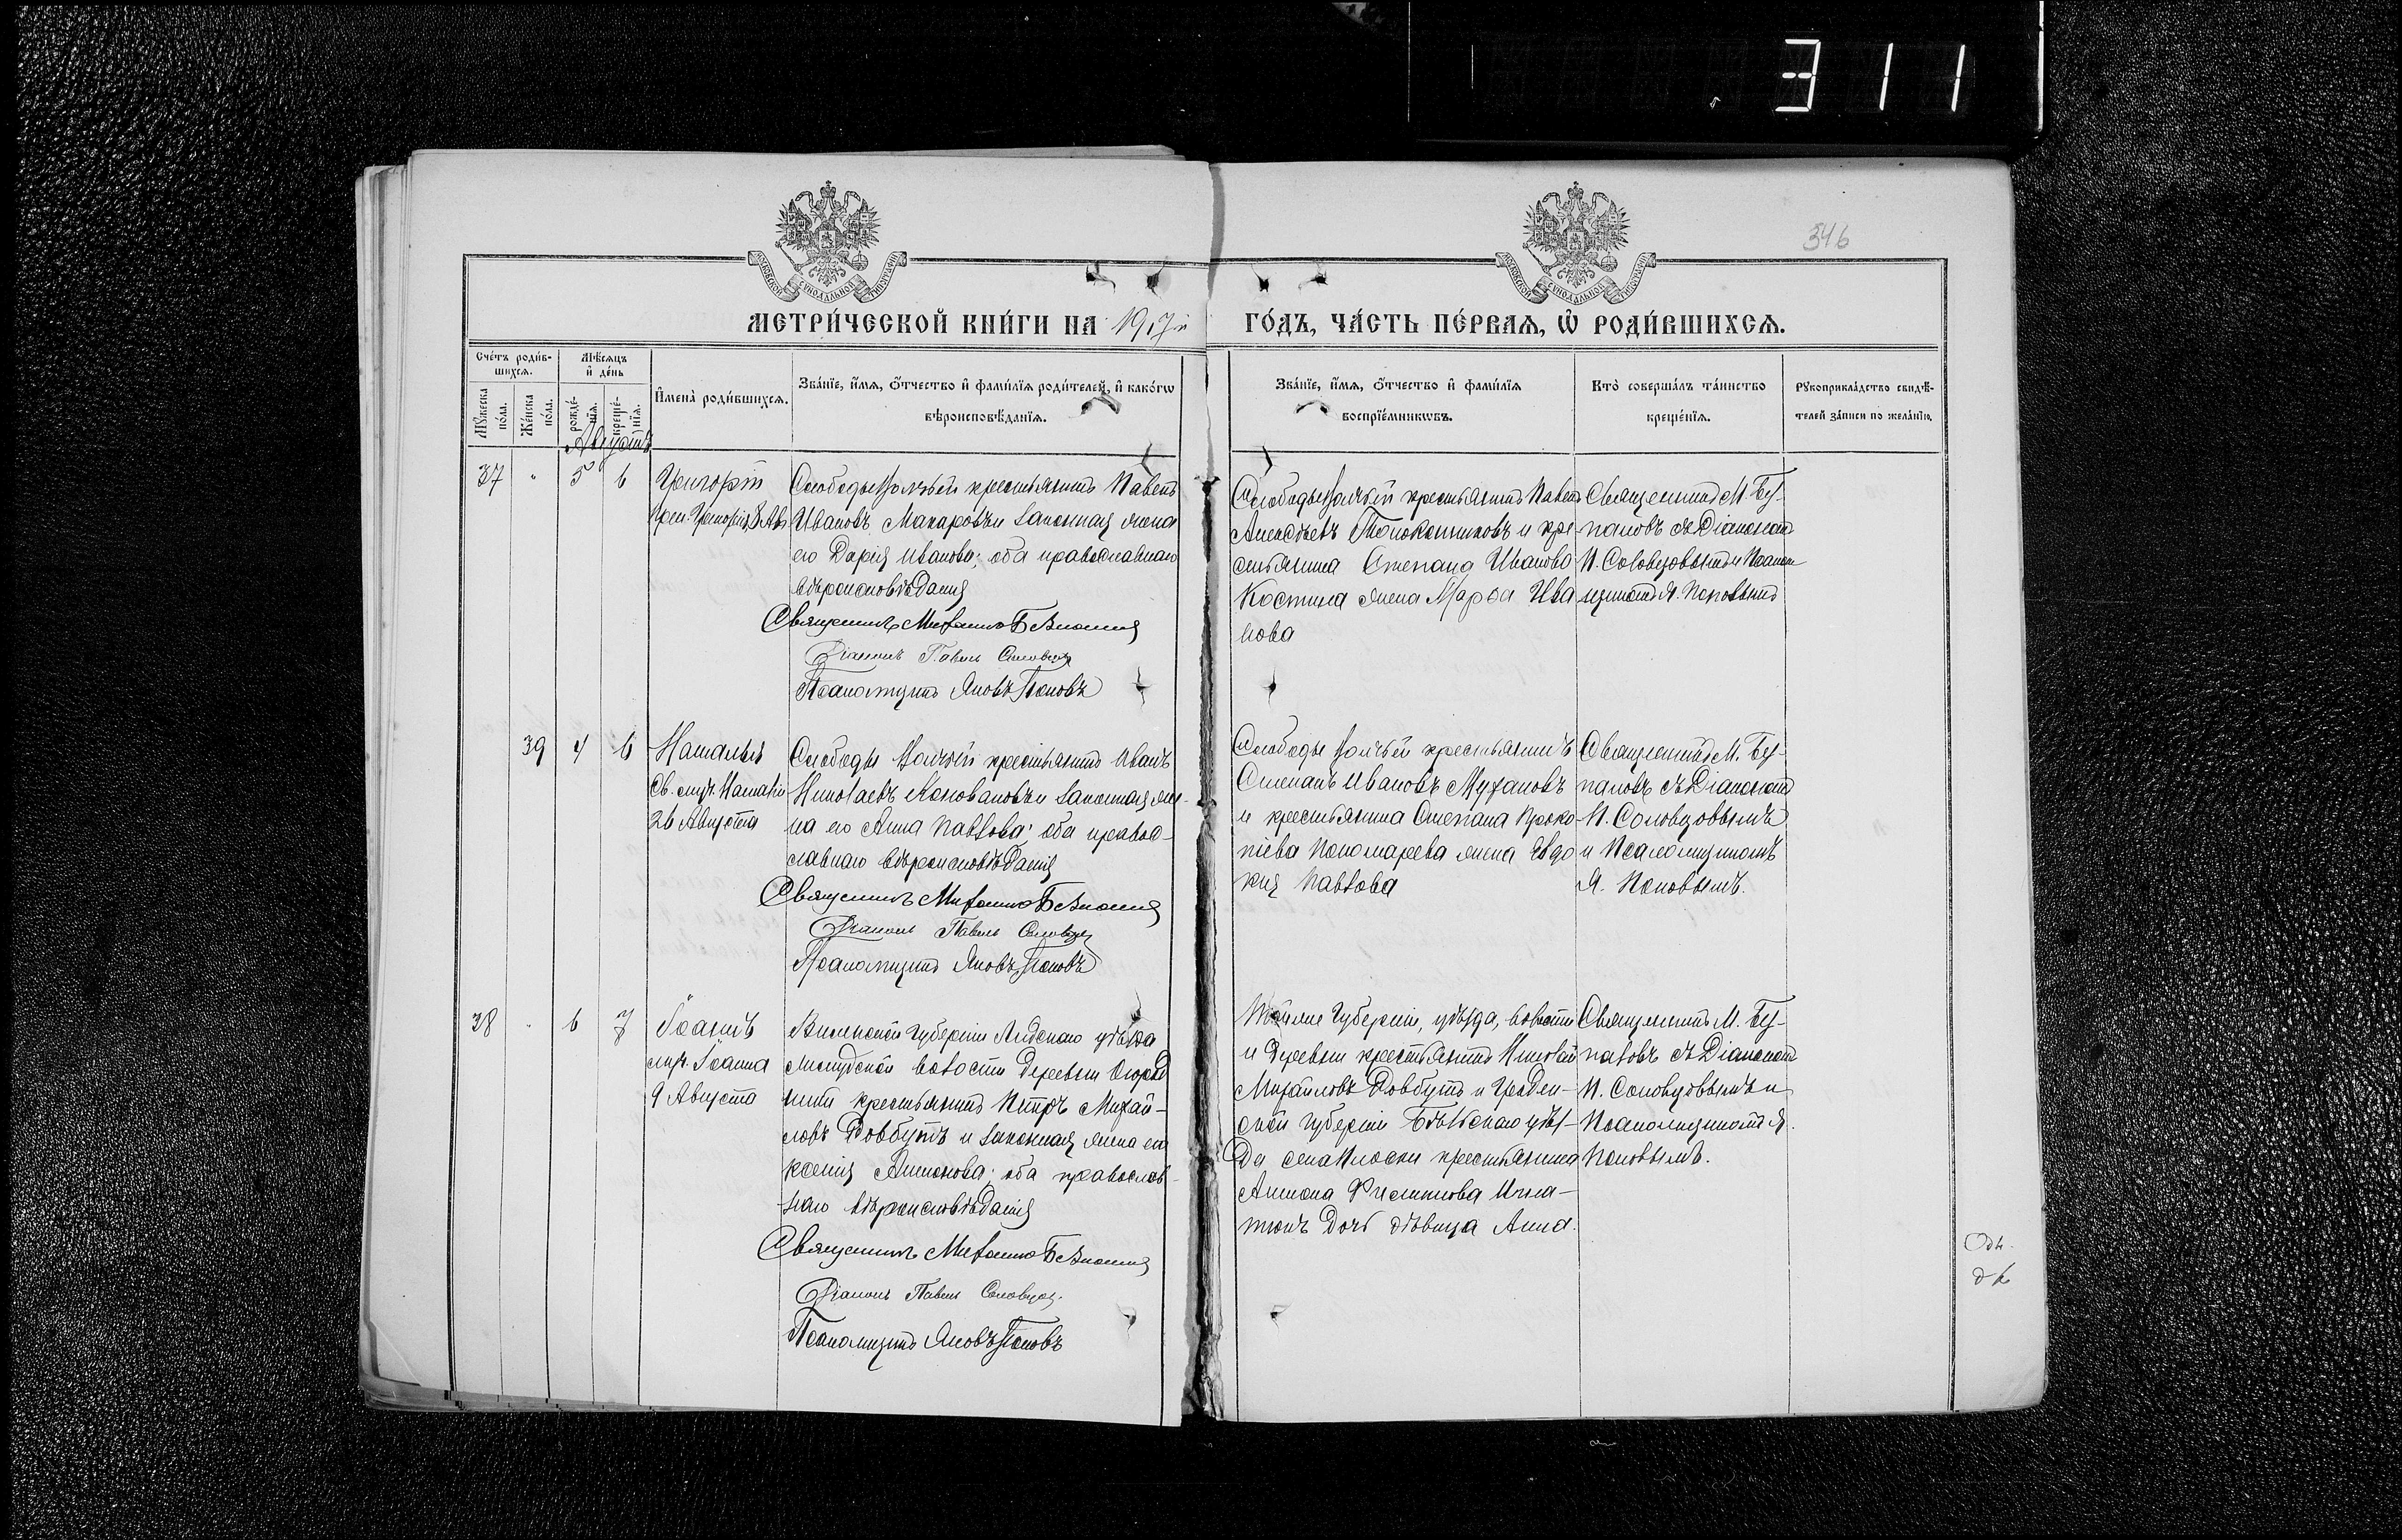 311
346
МЕТРИ́ЧЕСКОЙ КНИ́ГИ НА 1917й ГО́ДЪ, ЧА́СТЬ ПЕ́РВАЯ, Ѿ РОДИ́ВШИХСЯ.
Сче́тъ роди́в-
шихся.
Мѣ́сяцъ
и҆ де́нь
Мꙋ́жеска
по́ла.
Же́нска
по́ла.
рожде́-
нїя.
креще́-
нїя.
И҆мена̀ роди́вшихся.
Зва́нїе, и҆́мя, ѻ҆́тчество и҆ фами́лїя роди́телей, и҆ како́гѡ
вѣроисповѣ́данїя.
Зва́нїе, и҆́мя, ѻ҆́тчество и҆ фами́лїя
воспрїе́мникѡвъ.
Кто̀ соверша́лъ та́инство
креще́нїя.
Рꙋкоприкла́дство свидѣ́-
телей за́писи по жела́нїю.
Августъ
37 " 5 6
Григорій
Преп. Григорія 8 Авг.
Слободы Волчьей крестьянинъ Павелъ
Ивановъ Макаровъ и законная жена
его Дарія Иванова; оба православнаго
вѣроисповѣданія
Священникъ Митрофанъ
Діаконъ Павелъ Соловцовъ
Псаломщикъ Яковъ Поповъ
Слободы Волчьей крестьянинъ Павелъ
Алексѣевъ и кре-
стьянина Степана Иванова
Костина жена Марѳа Ива
нова
Священникъ М. Бу-
паковъ съ Діакономъ
П. Соловцовымъ и Псалом
щикомъ Я. Поповымъ
39 4 6
Наталья
Св. муч. Наталіи
26 Августа
Слободы Волчьей крестьянинъ Иванъ
Николаевъ Коноваловъ и законная же-
на его Анна Павлова; оба правос-
лавнаго вѣроисповѣданія
Священникъ Митрофанъ
Діаконъ Павелъ Соловцовъ
Псаломщикъ Яковъ Поповъ
Слободы Волчьей крестьянинъ
Степанъ Ивановъ Мухановъ
и крестьянина Степана Проко-
піева Пономарева жена Евдо
кія Павлова
Священникъ М. Бу-
паковъ съ Діакономъ
П. Соловцовымъ
и Псаломщикомъ
Я. Поповымъ.
38 " 6 7
Іоаннъ
муч. Іоанна
9 Августа
Виленской губерніи Лидскаго уѣзда
волости деревни Огород
ники крестьянинъ Петръ Михай-
ловъ Довбушъ и законная жена его
Ксенія Антонова; оба православ-
наго вѣроисповѣданія
Священникъ Митрофанъ
Діаконъ Павелъ Соловцовъ
Псаломщикъ Яковъ Поповъ
Той же губерніи, уѣзда, волости
и деревни крестьянинъ Николай
Михайловъ Довбушъ и Гродн-
ской губерніи Бѣльскаго уѣз-
да села крестьянина
Антона Филиппова
дочь дѣвица Анна.
Священникъ М. Бу-
паковъ съ Діакономъ
П. Соловцовымъ и
Псаломщикомъ Я.
Поповымъ.